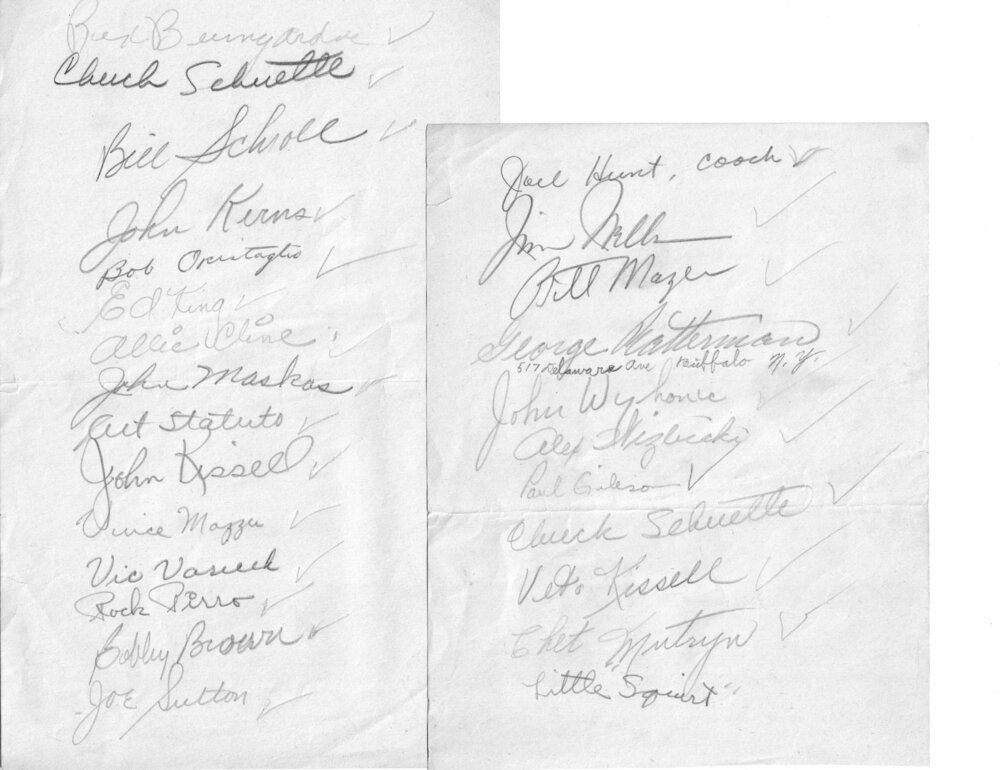 Bumgardner
Chuck Schuette
Bill Schroll
John Kerns
Bob Oristaglio
Ed King
Allie Cline
John Maskas
Art Statuto
John Kissell
Vince Mazza
Vic Vasicek
Rock Pirro
Bobby Brown
Joe Sutton
Joel Hunt, coach
Jim Wells
Bill Mazer
George Ratterman
517 Delaware Ave Buffalo N.Y.
John Wyhonic
Alex Wizbicki
Paul Gibson
Chuck Schuette
Veto Kissell
Chet Mutryn
Little "Squirt"